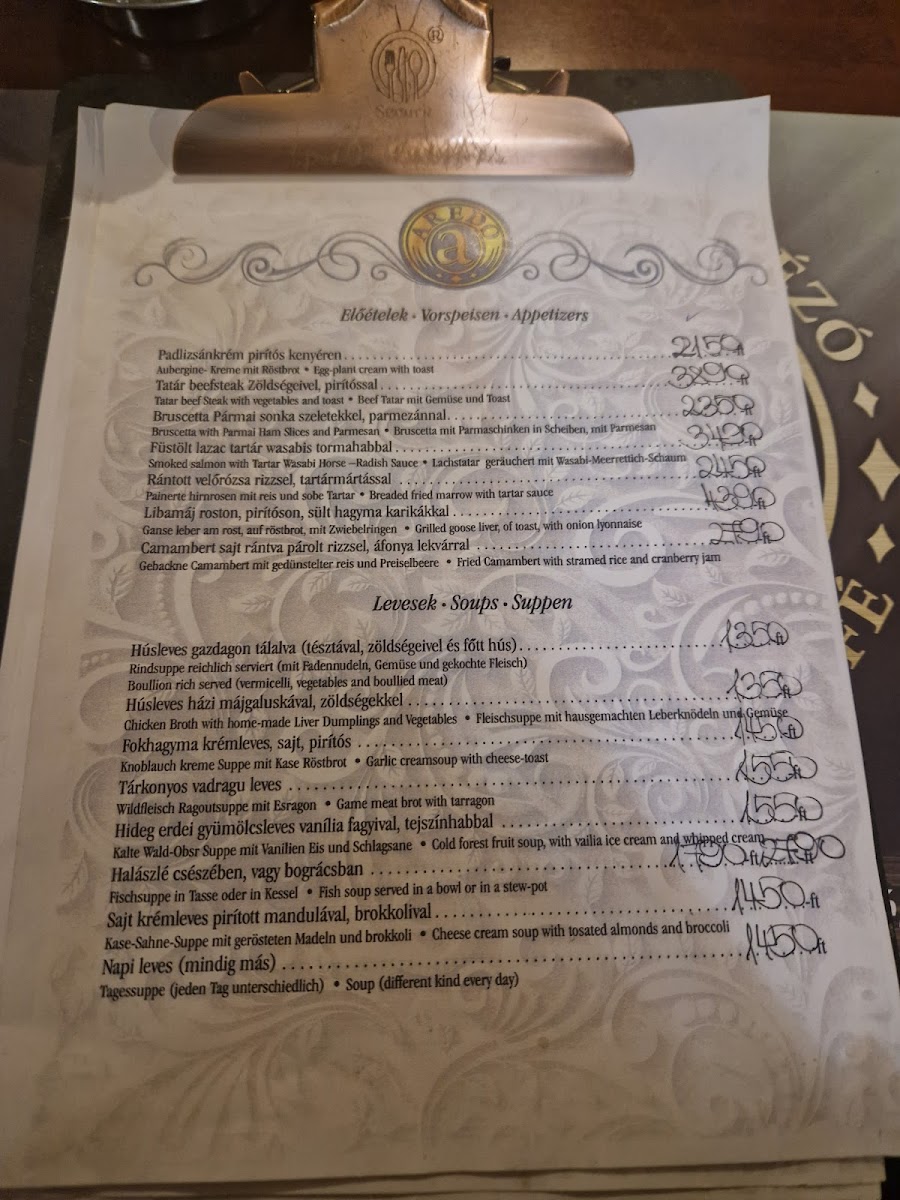 ®
Securit
AREDO
a
ÉZÓ
FÉ
Előételek • Vorspeisen • Appetizers
Padlizsánkrém pirítós kenyéren 2150 ft
Aubergine- Kreme mit Röstbrot • Egg-plant cream with toast
Tatár beefsteak Zöldségeivel, pirítóssal
Tatar beef Steak with vegetables and toast • Beef Tatar mit Gemüse und Toast
Bruscetta Pármai sonka szeletekkel, parmezánnal
Bruscetta with Parmai Ham Slices and Parmesan • Bruscetta mit Parmaschinken in Scheiben, mit Parmesan
Füstölt lazac tartár wasabis tormahabbal
Smoked salmon with Tartar Wasabi Horse –Radish Sauce • Lachstatar geräuchert mit Wasabi-Meerrettich-Schaum
Rántott velőrózsa rizzsel, tartármártással 2450 ft
Painerte hirnrosen mit reis und sobe Tartar • Breaded fried marrow with tartar sauce
Libamáj roston, pirítóson, sült hagyma karikákkal
Ganse leber am rost, auf röstbrot, mit Zwiebelringen • Grilled goose liver, of toast, with onion lyonnaise
Camambert sajt rántva párolt rizzsel, áfonya lekvárral
Gebackne Camambert mit gedünstelter reis und Preiselbeere • Fried Camambert with stramed rice and cranberry jam
Levesek • Soups • Suppen
Húsleves gazdagon tálalva (tésztával, zöldségeivel és főtt hús) 1350 ft
Rindsuppe reichlich serviert (mit Fadennudeln, Gemüse und gekochte Fleisch)
Boullion rich served (vermicelli, vegetables and boullied meat)
Húsleves házi májgaluskával, zöldségekkel 1350 ft
Chicken Broth with home-made Liver Dumplings and Vegetables • Fleischsuppe mit hausgemachten Leberknödeln und Gemüse
Fokhagyma krémleves, sajt, pirítós 1450 ft
Knoblauch kreme Suppe mit Kase Röstbrot • Garlic creamsoup with cheese-toast
Tárkonyos vadragu leves 1550 ft
Wildfleisch Ragoutsuppe mit Esragon • Game meat brot with tarragon
Hideg erdei gyümölcsleves vanília fagyival, tejszínhabbal 1550 ft
Kalte Wald-Obsr Suppe mit Vanilien Eis und Schlagsane • Cold forest fruit soup, with vailia ice cream and whipped cream
Halászlé csészében, vagy bográcsban
Fischsuppe in Tasse oder in Kessel • Fish soup served in a bowl or in a stew-pot
Sajt krémleves pirított mandulával, brokkolival 1450-ft
Kase-Sahne-Suppe mit gerösteten Madeln und brokkoli • Cheese cream soup with tosated almonds and broccoli
Napi leves (mindig más) 1450 ft
Tagessuppe (jeden Tag unterschiedlich) • Soup (different kind every day)